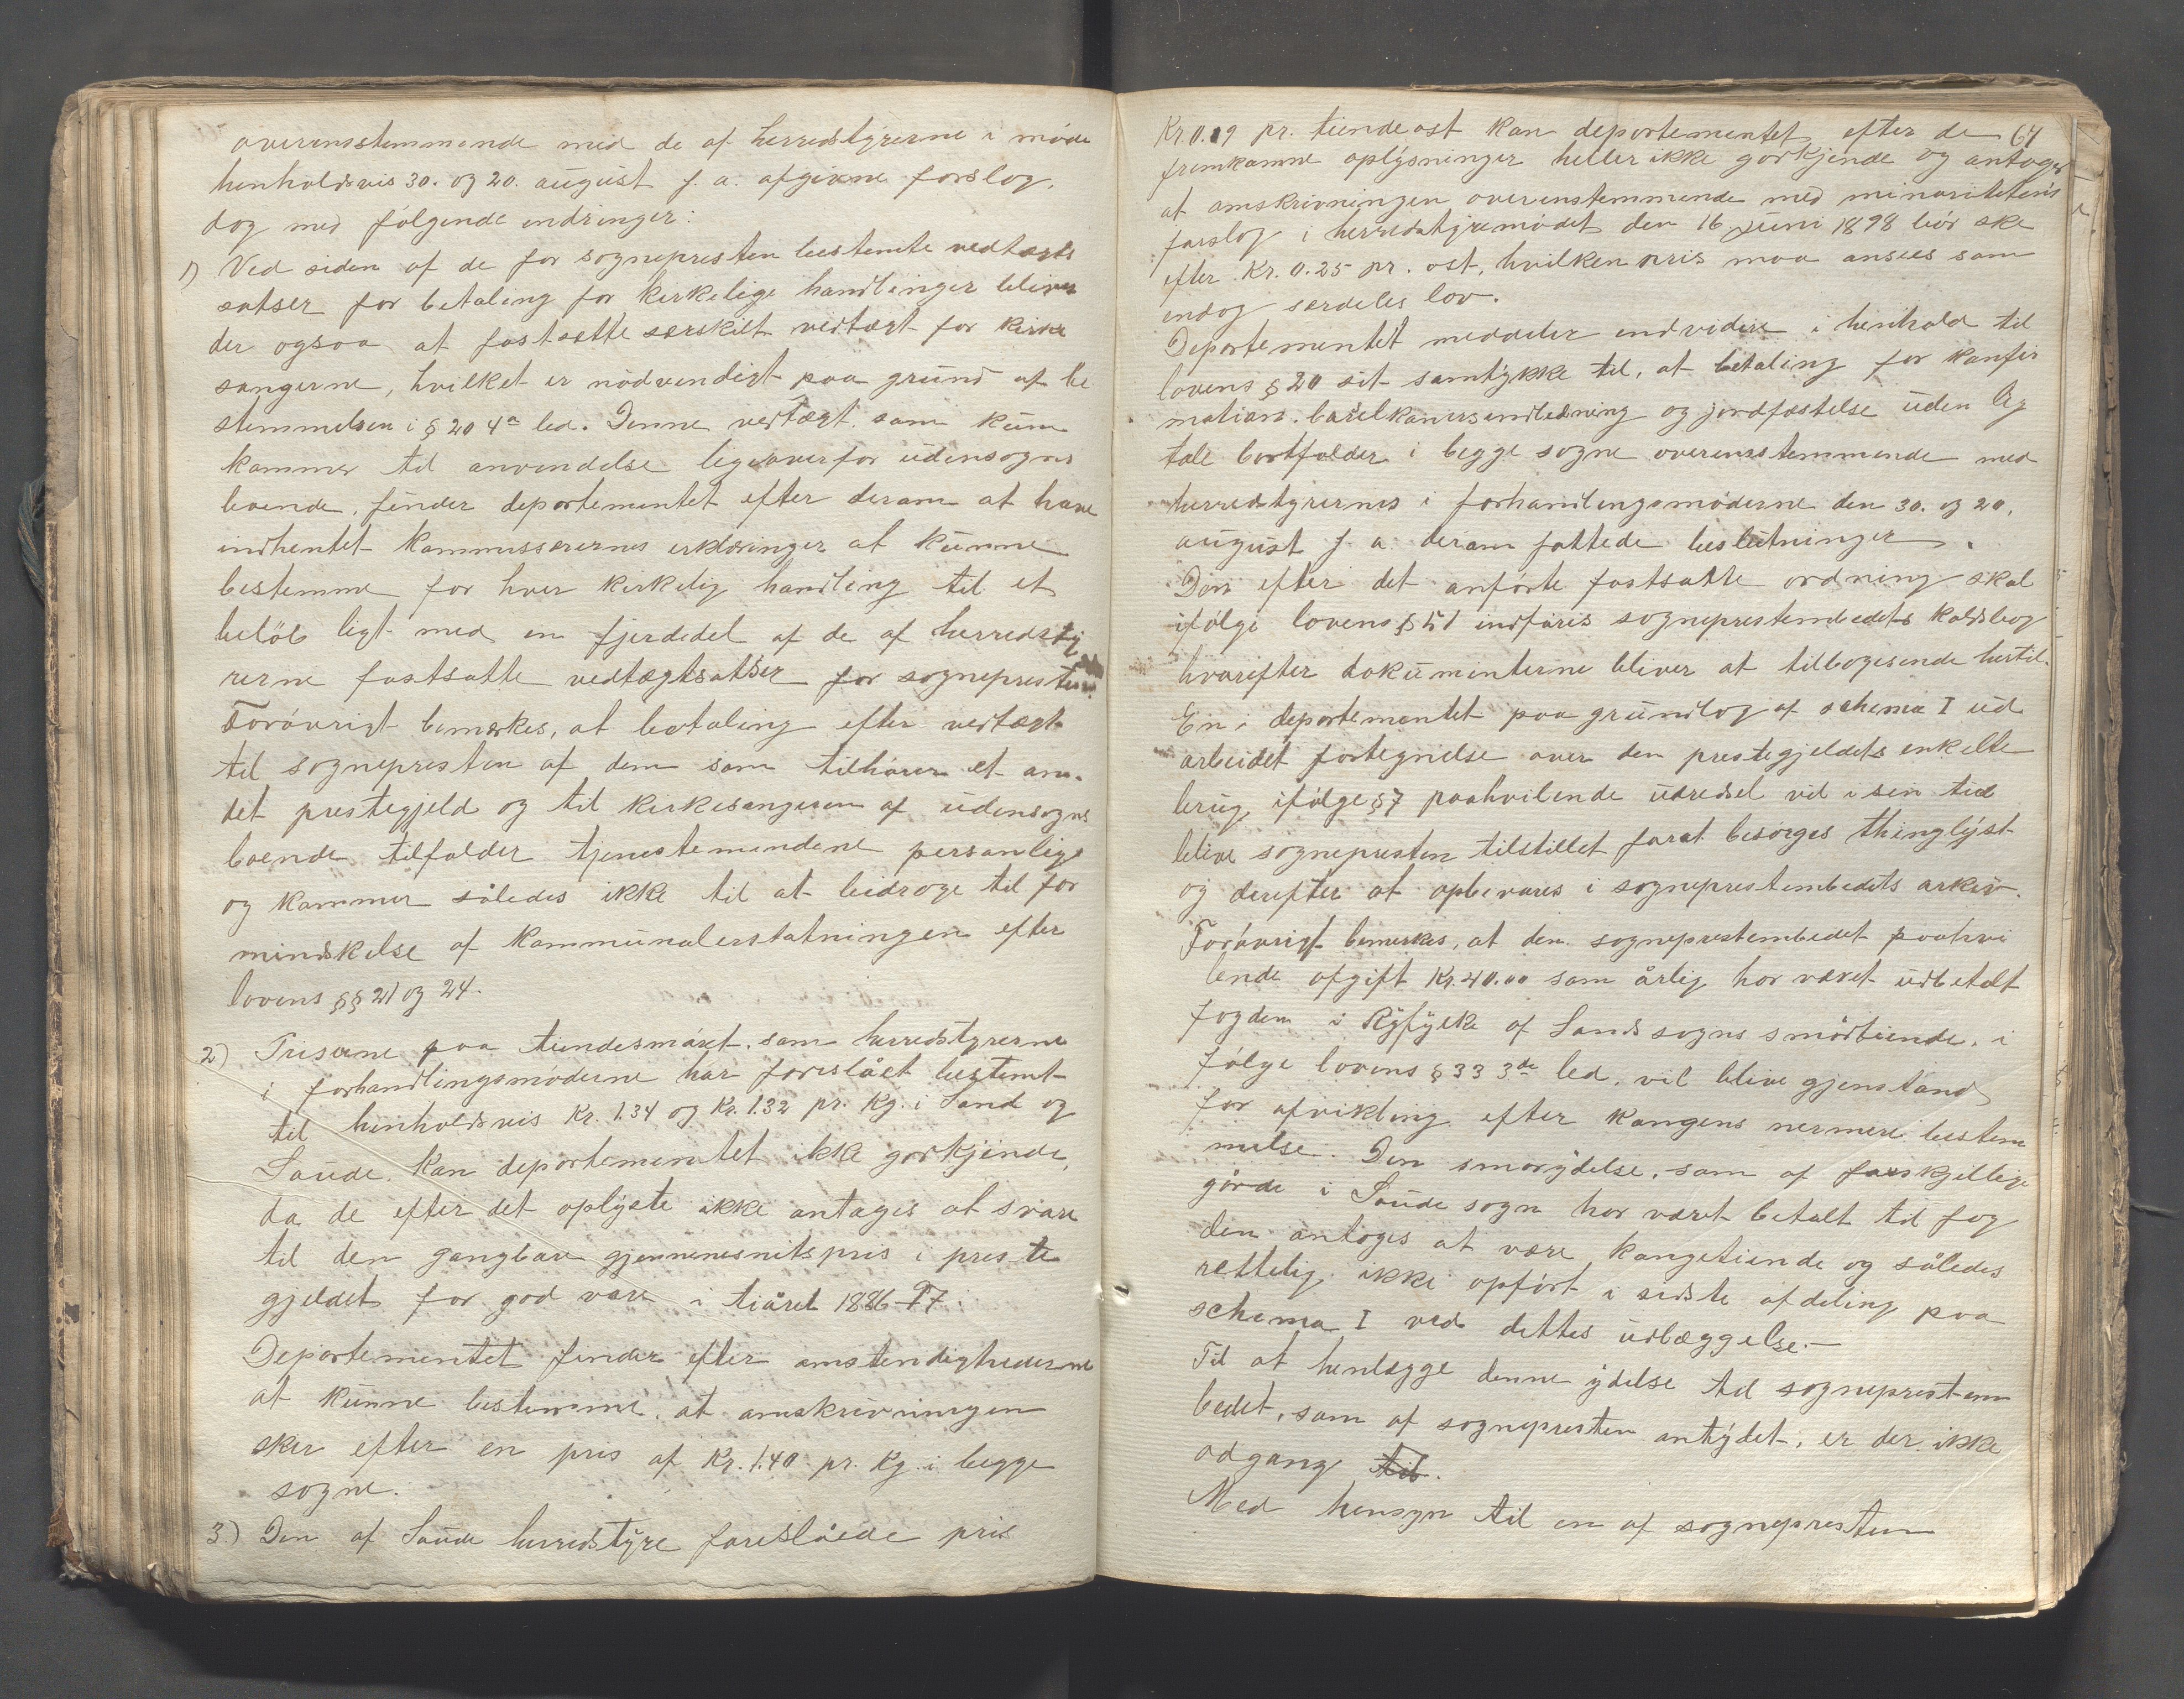 overensstemmende med de af herredstyrerne i møde
henholdsvis 30. og 20. august f. a. afgivne forslag,
dog med følgende endringer:
1) Ved siden af de for sognepresten bestemte vedtægts
satser for betaling for kirkelige handlinger bliver
der ogsaa at fastsætte særskilt vedtægt for kirke
sangerne, hvilket er nødvendigt paa grund af be
stemmelsen i § 20 4a led. Denne vedtægt, som kun
kommer til anvendelse ligeoverfor udensogns
boende, finder departementet efter derom at have
indhentet kommissærernes erklæringer at kunne
bestemme for hver kirkelig handling til et
beløb ligt med en fjerdedel af de af herredsty
rerne fastsatte vedtægtsatser for sognepresten.
Forøvrigt bemærkes, at betaling efter vedtægt
til sognepresten af dem som tilhører et an-
det prestegjeld og til kirkesangeren af udensogns
boende tilfalder tjenestemændene personlige
og kommer således ikke til at bidrage til for
mindskelse af kommunalerstatningen efter
lovens §§ 21 og 24.
2) Priserne paa tiendesmøret, som herredstyrerne
i forhandlingsmøderne har foreslået bestemt
til henholdsvis Kr. 1.34 og Kr. 1.32 pr. Kg. i Sand og
Saude, kan departementet ikke godkjende,
da de efter det oplyste ikke antages at svare
til den gangbare gjennemsnitspris i preste
gjeldet for god vare i tiåret 1886-97.
Departementet finder efter omstendighederne
at kunne bestemme, at omskrivningen
sker efter en pris af Kr. 1.40 pr. Kg. i begge
sogne.
3.) Den af Saude herredstyre foreslåede pris
64
Kr. 0.19 pr. tiendeost kan departementet efter de
fremkomne oplysninger heller ikke godkjende og antager
at omskrivningen overenstemmende med minoritetens
forslag i herredstyremødet den 16 juni 1898 bør ske
efter Kr. 0.25 pr. ost, hvilken pris maa ansees som
endog særdeles lav.
Departementet meddeler endvidere i henhold til
lovens § 20 sit samtykke til, at betaling for konfir
mation, barselkonersindledning og jordfæstelse uden lig
tale bortfalder i begge sogne overensstemmende med
herredstyrernes i forhandlingsmøderne den 30. og 20.
august f. a. derom fattede beslutninger.
Den efter det anførte fastsatte ordning skal
ifølge lovens § 51 indføres sogneprestembedets kaldsbog
hvorefter dokumenterne bliver at tilbagesende hertil.
En i departementet paa grundlag af schema I ud
arbeidet fortegnelse over den prestegjeldets enkelte
brug ifølge § 7 paahvilende udredsel vil i sin tid
blive sognepresten tilstillet forat besørges thinglyst
og derefter at opbevares i sogneprestembedets arkiv.
Forøvrigt bemerkes, at den sogneprestembedet paahvi
lende afgift Kr. 40.00 som årlig har været udbetalt
fogden i Ryfylke af Sands sogns smørtiende, i
følge lovens § 33 3de led, vil blive gjenstand
for afvikling efter kongens nærmere bestem
melse. Den smørydelse, som af forskjellige
gårde i Saude sogn har været betalt til fog
den antages at være kongetiende og således
rettelig ikke opført i sidste afdeling paa
schema I ved dettes udlæggelse.—
Til at henlægge denne ydelse til sogneprestem
bedet, som af sognepresten antydet, er der ikke
adgang til.
Med hensyn til en af sognepresten